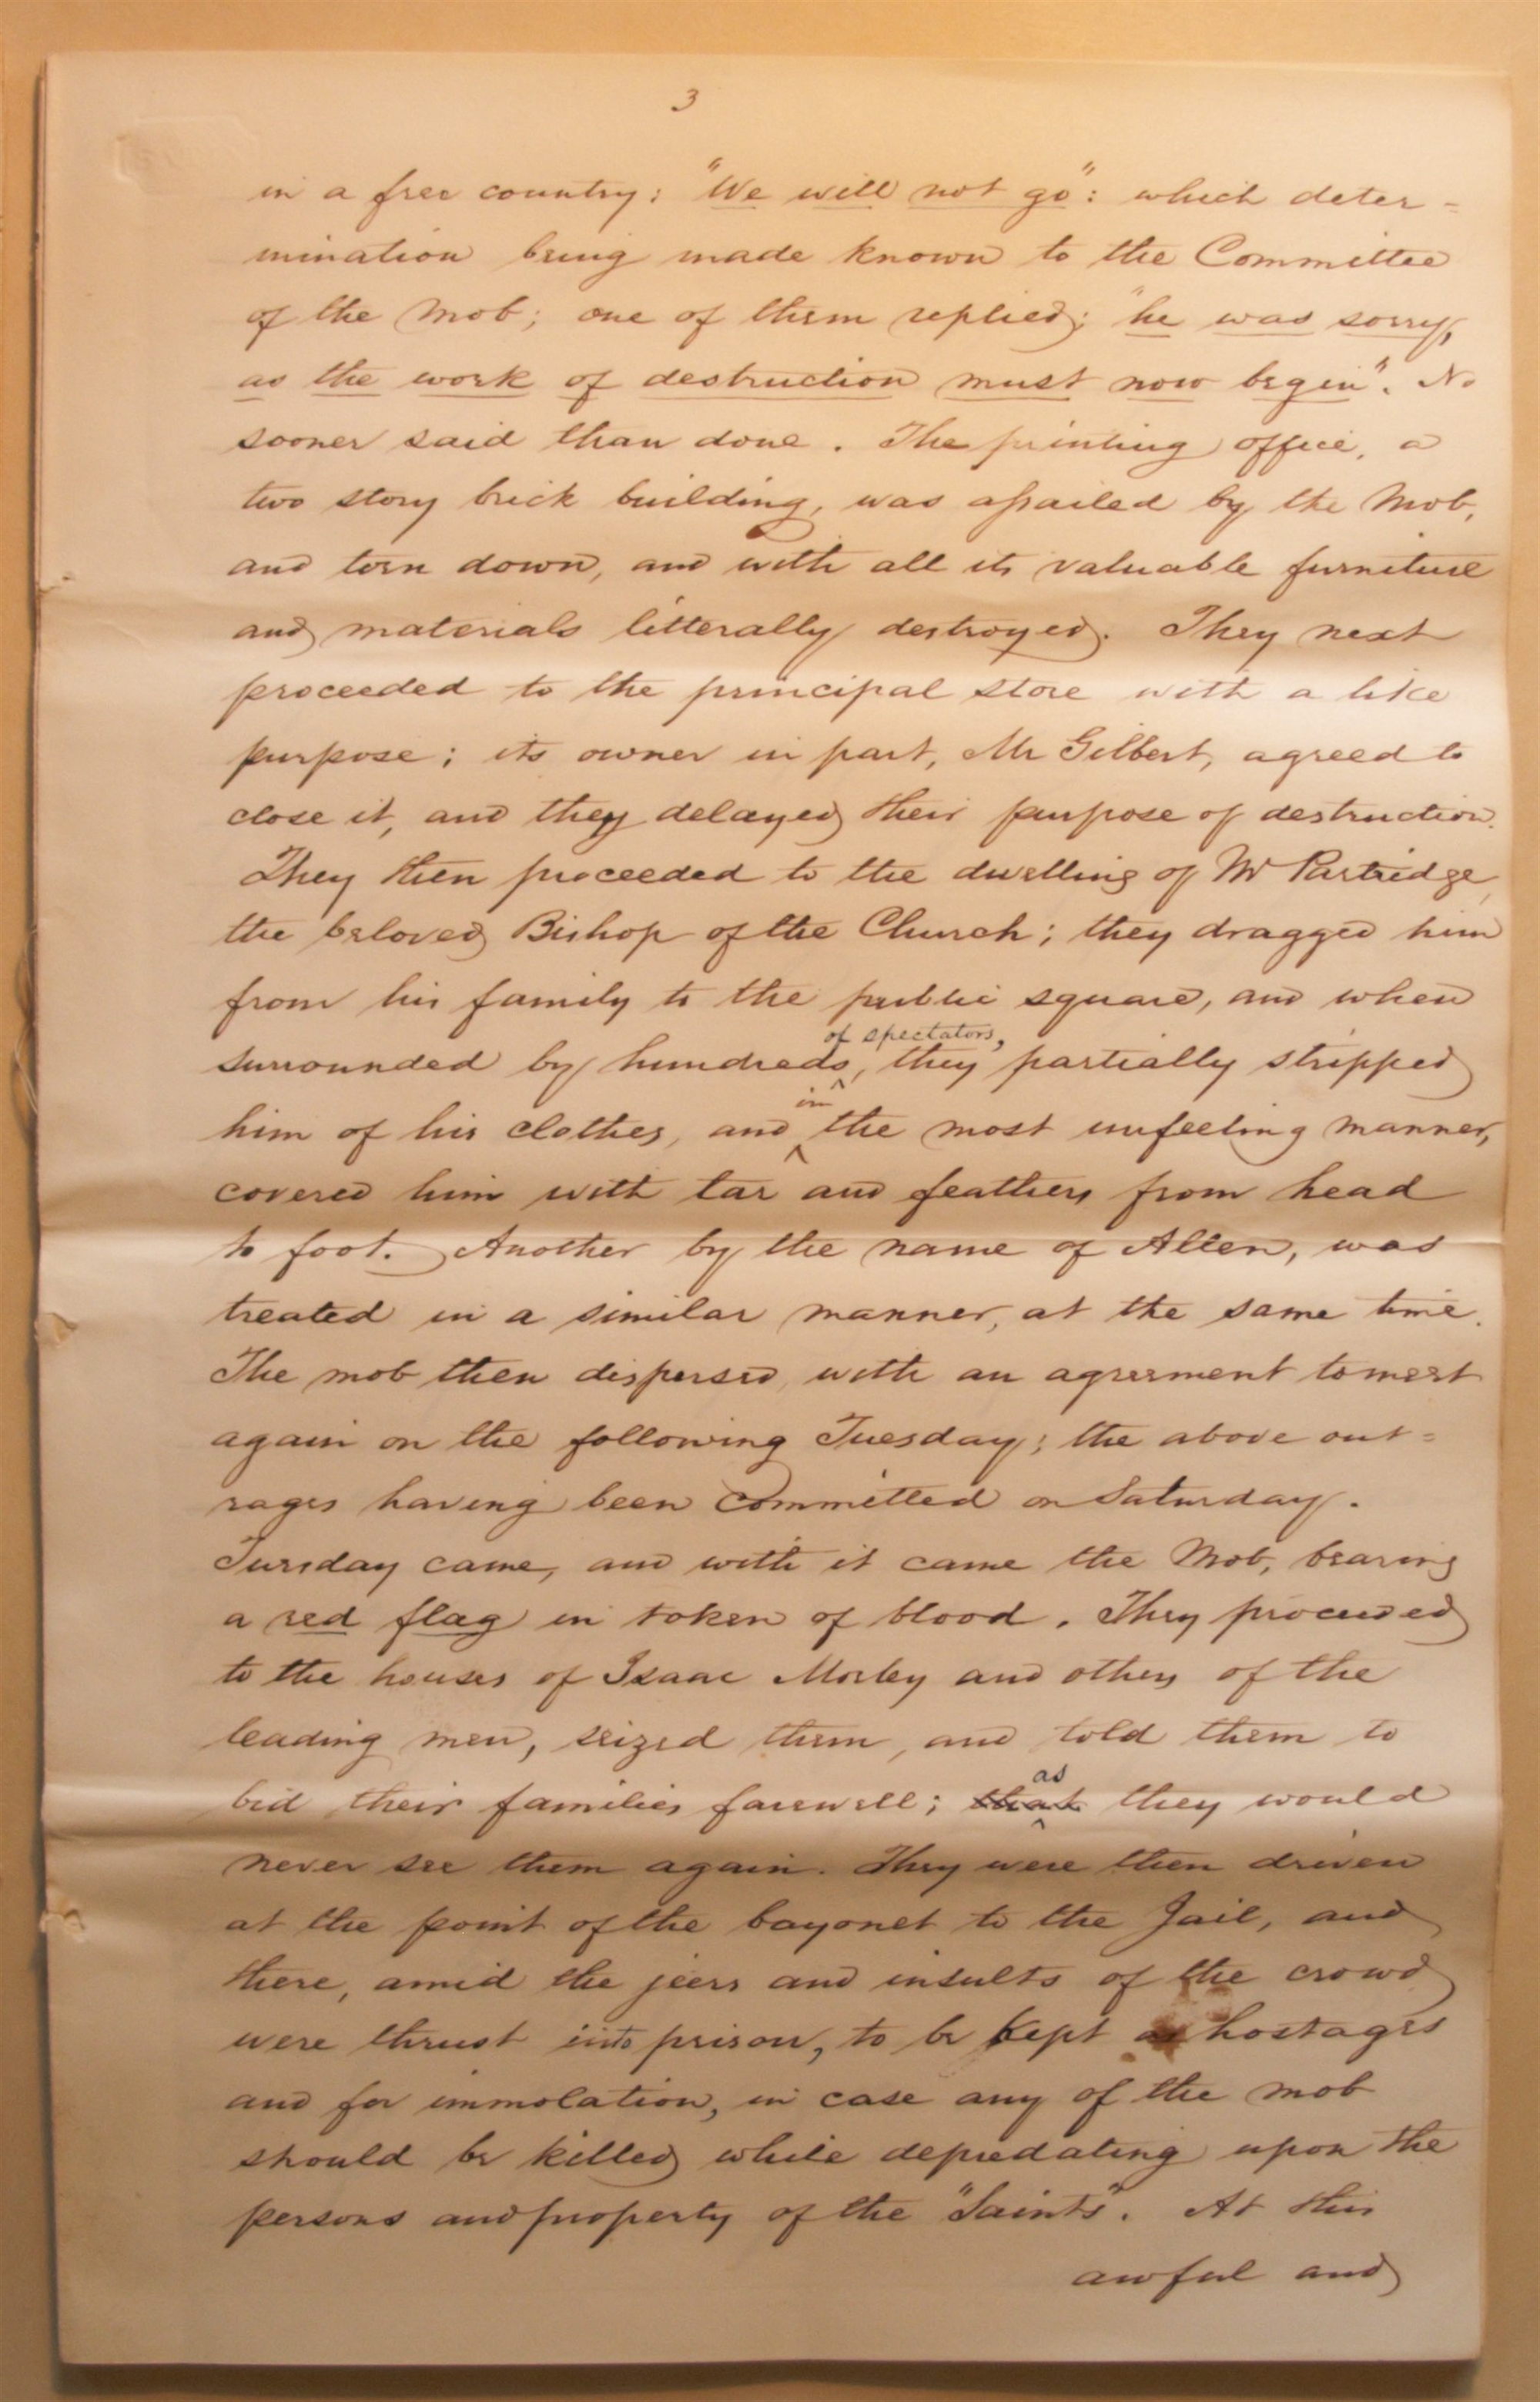 3
in a free country; "We will not go": which deter-
mination being made known to the Committee
of the Mob; one of them replied; "he was sorry,
as the work of destruction must now begin". No
sooner said than done. The printing office, a
two story brick building, was assailed by the Mob,
and torn down, and with all its valuable furniture
and materials litterally destroyed. They next
proceeded to the principal store with a like
purpose; its owner in part, Mr Gilbert, agreed to
close it, and they delayed their purpose of destruction.
They then proceeded to the dwelling of Mr Partridge,
the beloved Bishop of the Church; they dragged him
from his family to the public square, and when
of spectators,
surrounded by hundreds, they partially stripped
in
him of his clothes, and the most unfeeling manner,
covered him with tar and feathers from head
to foot. Another by the name of Allen, was
treated in a similar manner, at the same time.
The mob then dispersed, with an agreement to meet
again on the following Tuesday; the above out=
rages having been committed on Saturday.
Tuesday came, and with it came the Mob, bearing
a red flag in token of blood. They proceeded
to the houses of Isaac Morley and others of the
leading men, seized them, and told them to
as
bid their families farewell; that they would
never see them again. They were then driven
at the point of the bayonet to the Jail, and
there, amid the jeers and insults of the crowd
were thrust into prison, to be kept as hostages
and for immolation, in case any of the mob
should be killed while depredating upon the
persons and property of the "Saints". At this
awful and